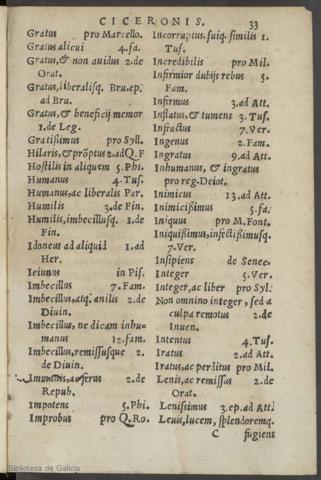 CICERONIS. 33
Gratus pro Marcello.
Gratus alicui 4.fa.
Gratus,& non auidus 2.de
Orat.
Gratus,liberalisq. Bru.ep.
ad Bru.
Gratus,& beneficij memor
1.de Leg.
Gratißimus pro Syll.
Hilaris,& prōptus 2.ad Q.F
Hostilis in aliquem 5.Phi.
Humanus 4.Tus.
Humanus,ac liberalis Par.
Humilis 3.de Fin.
Humilis,imbecillusq. 1.de
Fin.
Idoneus ad aliquid 1.ad
Her.
Ieiunus in Pis.
Imbecillus 7.Fam.
Imbecillus,atq.anilis 2.de
Diuin.
Imbecillus, ne dicam inhu-
manus 12.fam.
Imbecillus,remissusque 2.
de Diuin.
Immanis,ac ferus 2.de
Repub.
Impotens 5.Phi.
Improbus pro Q.Ro.
Incorruptus.suiq.similis 1.
Tus.
Incredibilis pro Mil.
Infirmior dubijs rebus 5.
Fam.
Infirmus 3.ad Att.
Inflatus,& tumens 3.Tus.
Infractus 7.Ver.
Ingenus 2.Fam.
Ingratus 9.ad Att.
Inhumanus, & ingratus
pro reg.Deiot.
Inimicus 13.ad Att.
Inimicißimus 5.fa.
Iniquus pro M.Font.
Iniquißimus,infectißimusq.
7.Ver.
Insipiens de Senec.
Integer 5.Ver.
Integer,ac liber pro Syl.
Non omnino integer, sed a
culpa remotus 2.de
Inuen.
Intentus 4.Tus.
Iratus 2.ad Att.
Iratus,ac perditus pro Mil.
Lenis,ac remissus 2.de
Orat.
Lenissimus 3.ep.ad Att.
Leuis,lucem, splendoremq.
C fugiens
Biblioteca de Galicia